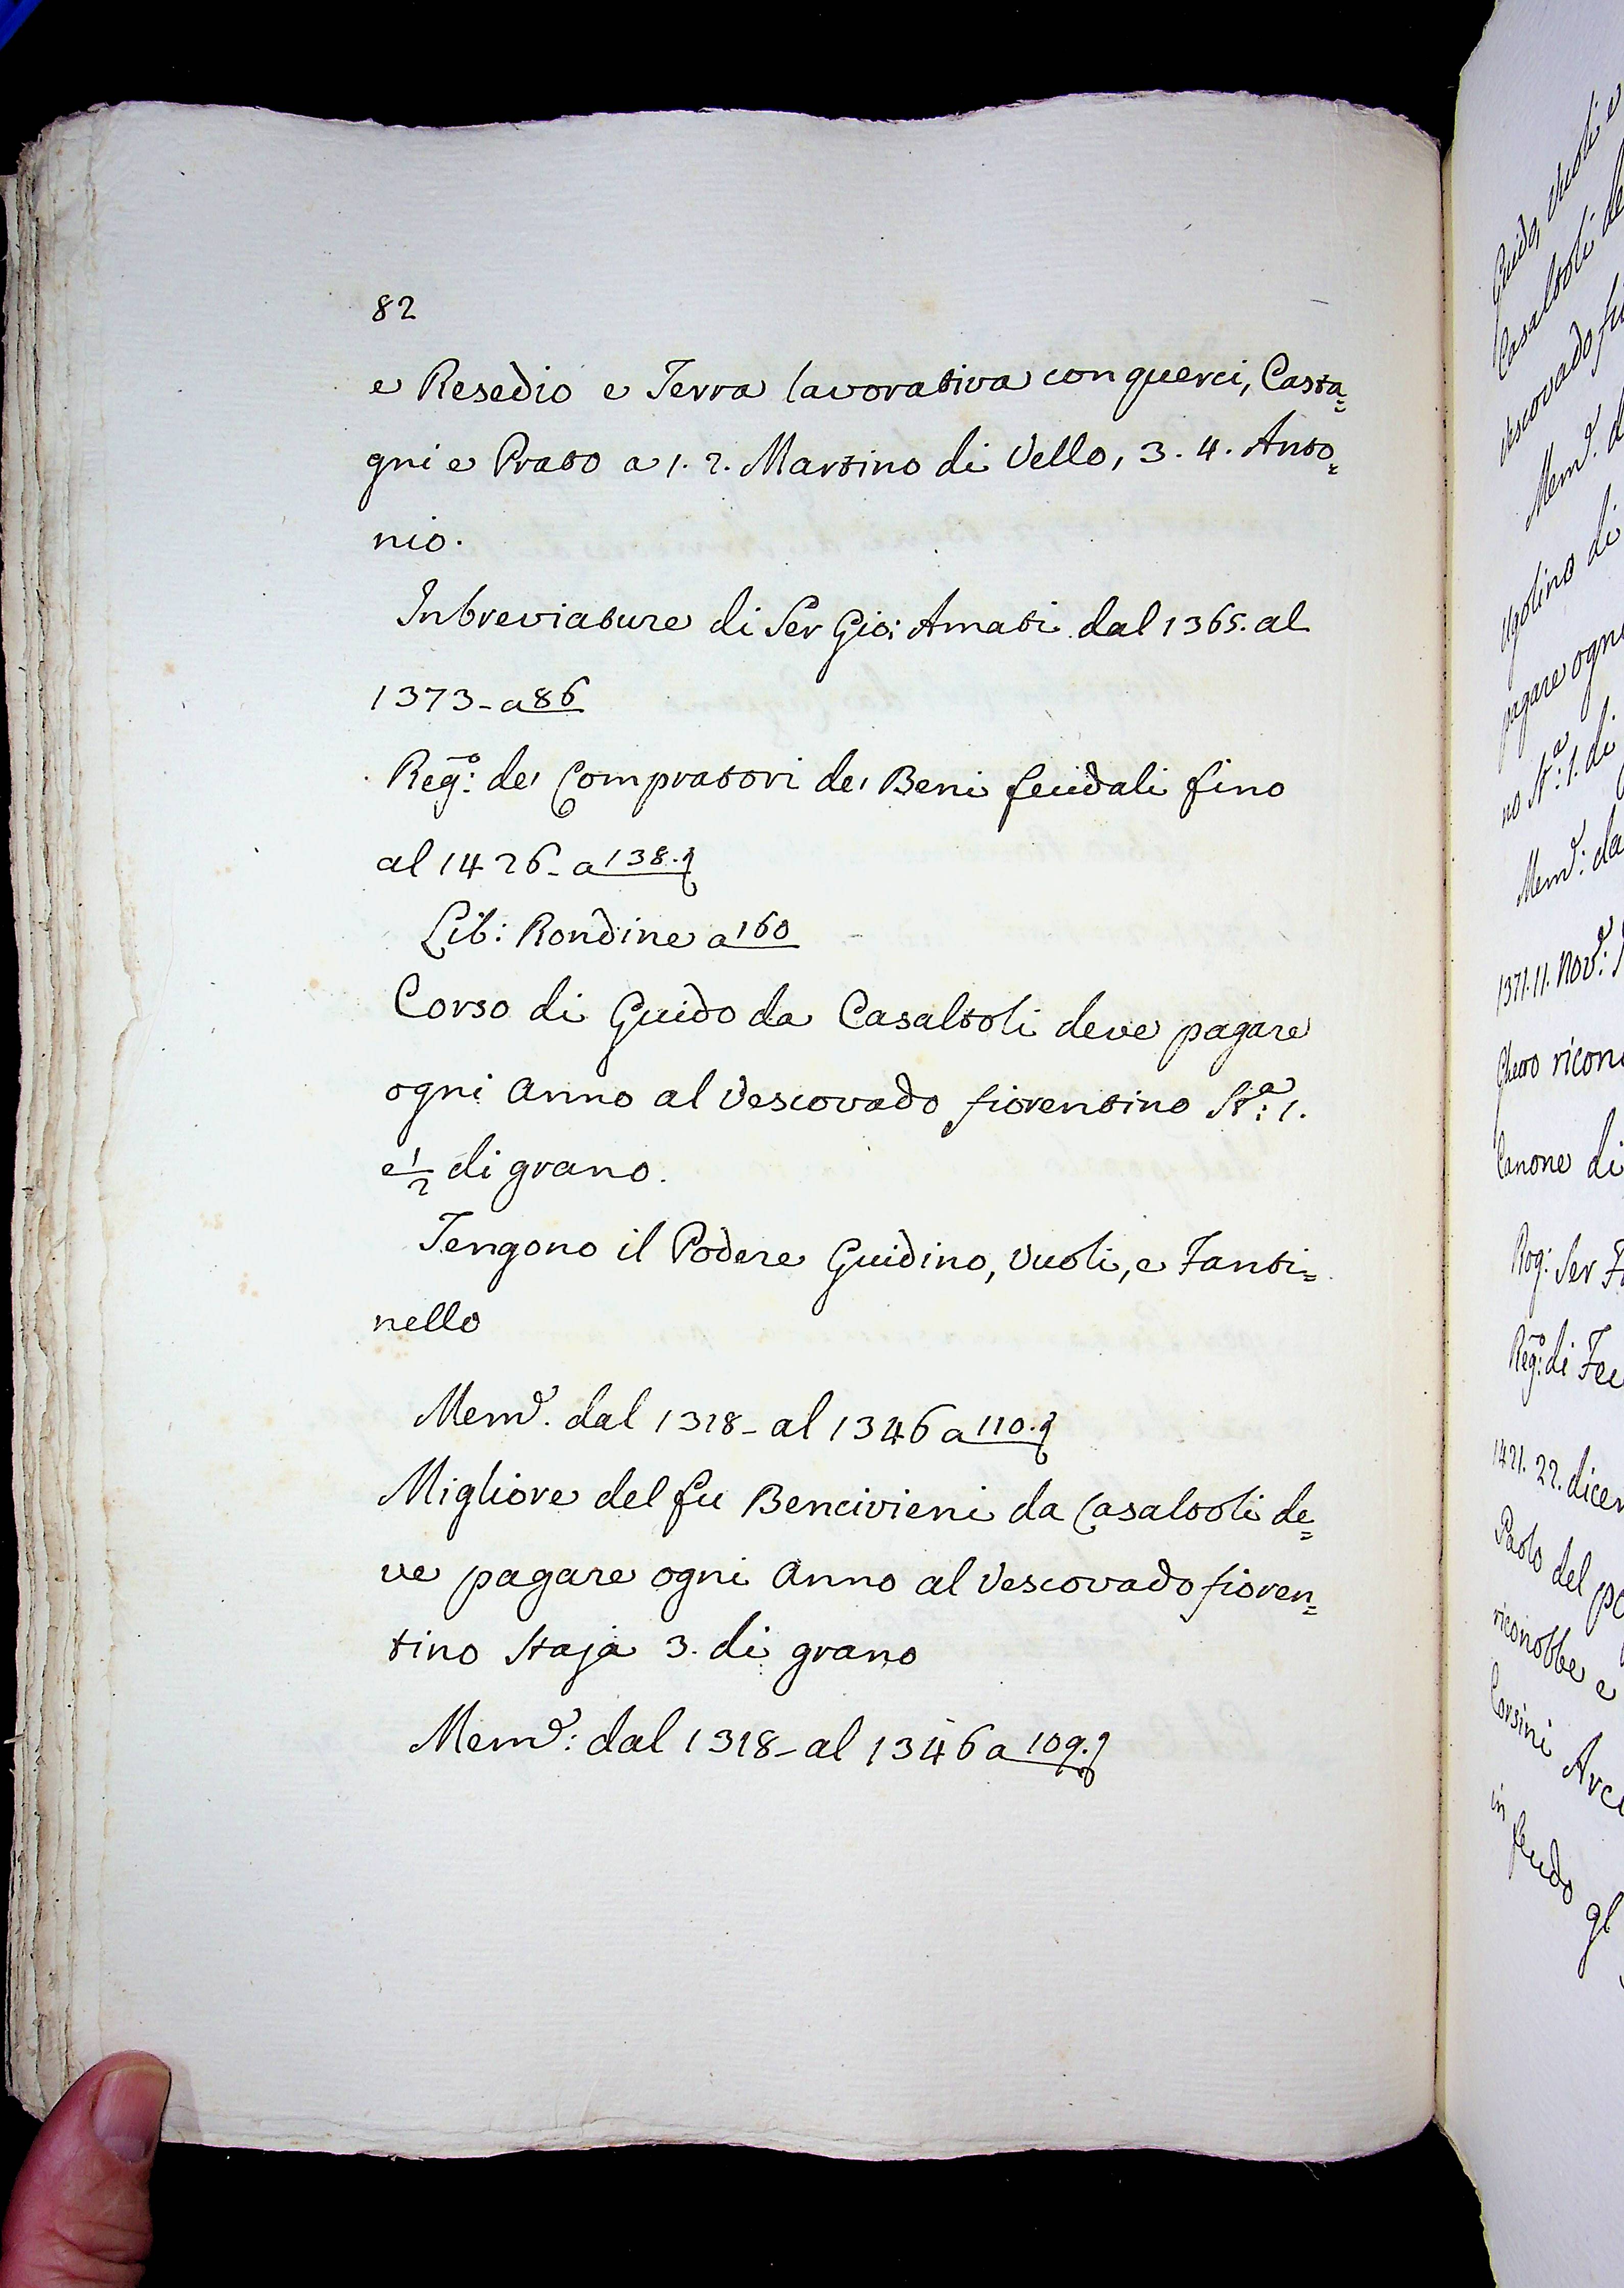 82
e Resedio e Terra lavorativa con querci, Casta=
gni e Prato a 1. 2. Martino di Vello, 3. 4. Anto=
nio.
Inbreviature di Ser Gio: Amati dal 1365. al
1373 - a 86
Reg.º: de' Compratori de' Beni feudali fino
al 1426 - a 138.
Lib: Rondine a 160
Corso di Guido da Casaltoli deve pagare
ogni Anno al Vescovado fiorentino St.ª: 1.
e 1/2 di grano.
Tengono il Podere Guidino, Vuoli, e Fanti=
nello
Mem.e dal 1318 - al 1346 a 110.
Migliore del fu Bencivieni da Casaltoli de=
ve pagare ogni Anno al Vescovado fioren=
tino Staja 3. di grano
Mem.e: dal 1318 - al 1346 a 109.
Guido, Vuoli e
Casaltoli de
Vescovado fi
Mem.e d
Ugolino di
pagare ogn
no St.ª: 1. di
Mem.e: da
1371. 11. Nov.e:
ricon
Canone di
Rog: Ser F
Reg.º: di Feu
1421. 22. dicem
Paolo del po
riconobbe e
Corsini Arci
in feudo gl